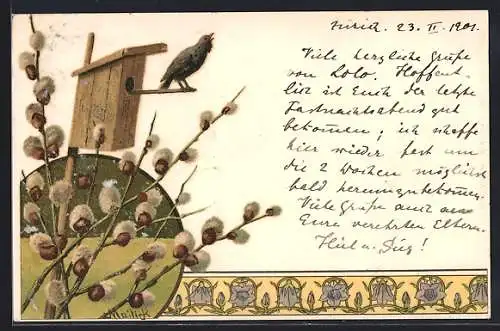 Zürich. 23. II. 1901.
Viele herzliche Grüße
von Lolo. Hoffent-
lich ist Euch der letzte
Fastnachtsabend gut
bekommen; ich schaffe
hier wieder fest um
die 2 Wochen möglichst
bald herumzubekommen.
Viele Grüße auch an
Eure verehrten Eltern.
Heil u. Sieg!
Mailick